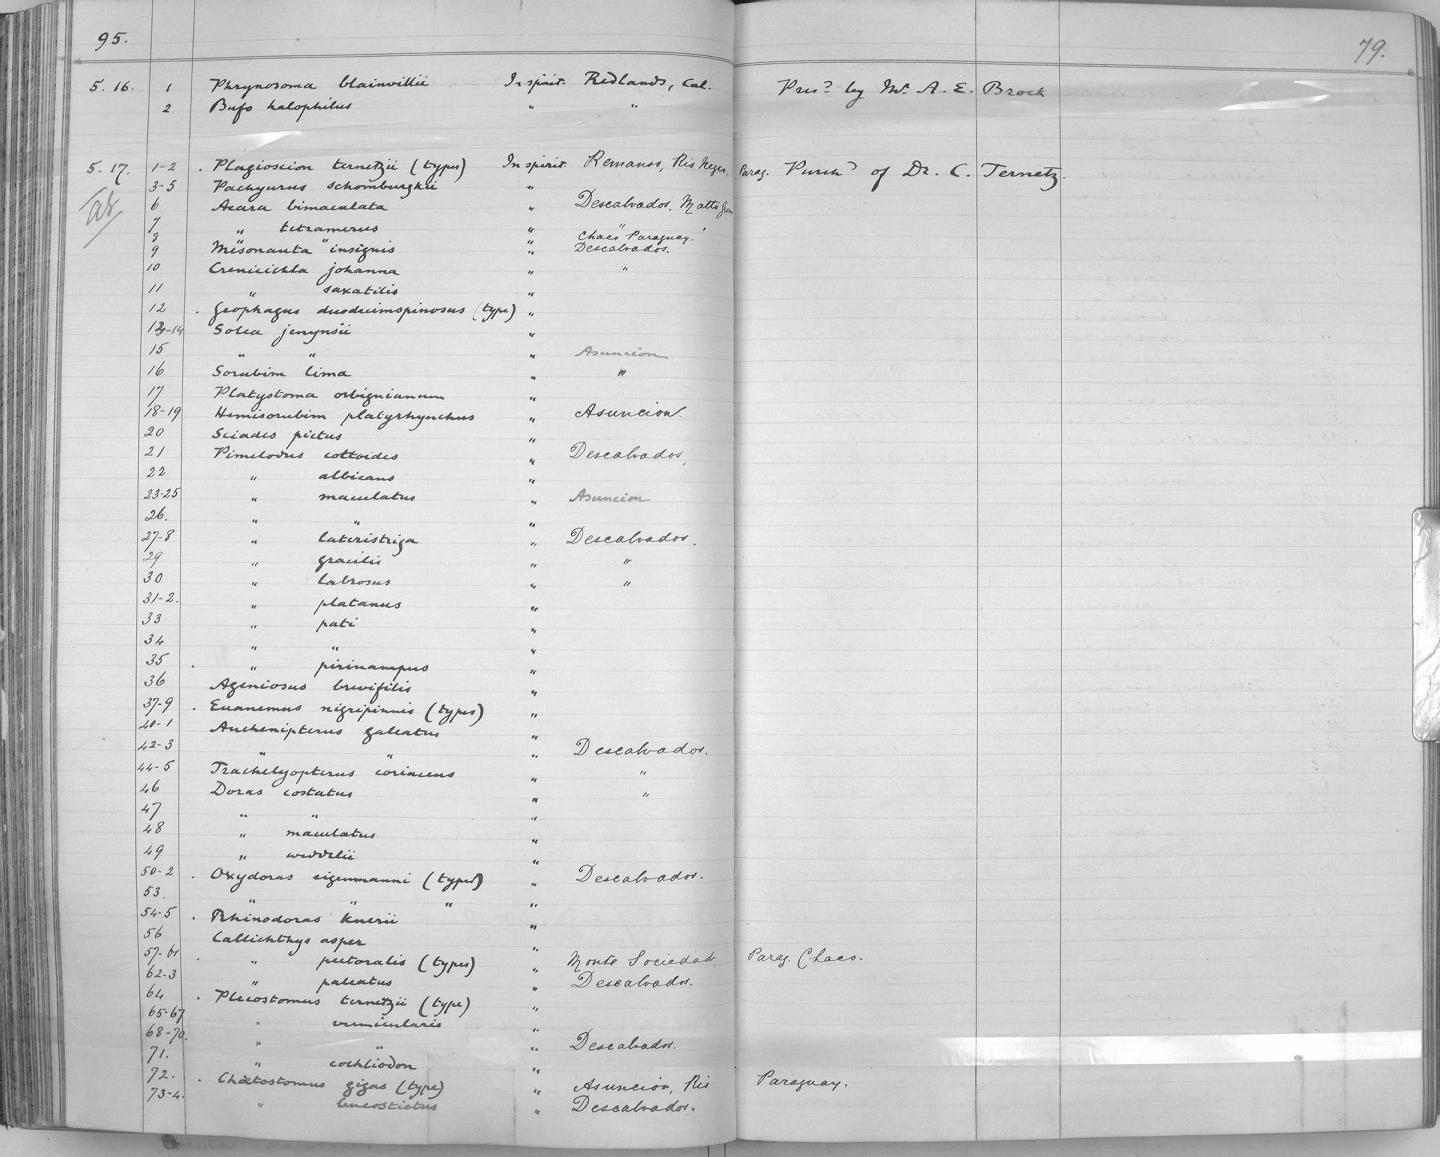 95.
79.
5. 16. 1 Phrynosoma blainvillii In spirit. Redlands, Cal. Pres? by Mr A. E. Brock
2 Bufo halophilus " "
5. 17. 1-2 . Plagioscion ternetzii (types) In spirit. Remanso, Rio Negro, Parag. Purch? of Dr. C. Ternetz.
3-5 Pachyurus schomburgkii "
6 Acara bimaculata " Descalvados, Matto
7 " tetramerus " "
8 " " " Chaco Paraguay.
9 Mesonauta insignis " Descalvados.
10 Crenicichla johanna " "
11 " saxatilis "
12 . Geophagus duodecimspinosus (type) "
13-14 Solea jenynsii "
15 " " " Asuncion
16 Sorubim lima " "
17 Platystoma orbignianum "
18-19 Hemisorubim platyrhynchus " Asuncion.
20 Sciades pictus "
21 Pimelodus cottoides " Descalvados,
22 " albicans "
23-25 " maculatus " Asuncion
26. " " "
27-8 " lateristriga " Descalvados.
29 " gracilis " "
30 " labrosus " "
31-2. " platanus "
33 " pati "
34 " " "
35 . " pirinampus "
36 Ageniosus brevifilis "
37-9 . Euanemus nigripinnis (types) "
40-1 Auchenipterus galeatus "
42-3 " " " Descalvados.
44-5 Trachelyopterus coriaceus " "
46 Doras costatus " "
47 " " "
48 " maculatus "
49 " weddelii "
50-2 . Oxydoras eigenmanni (types) " Descalvados.
53. " " " "
54-5 . Rhinodoras knerii "
56 Callichthys asper "
57-61 . " pectoralis (types) " Monte Sociedad Parag. Chaco.
62-3 " paleatus " Descalvados.
64 . Plecostomus ternetzii (type) "
65-67 " vermicularis "
68-70. " " " Descalvados.
71. " cochliodon "
72. . Chætostomus gigas (type) " Asuncion, Rio Paraguay.
73-4. " leucostictus " Descalvados.